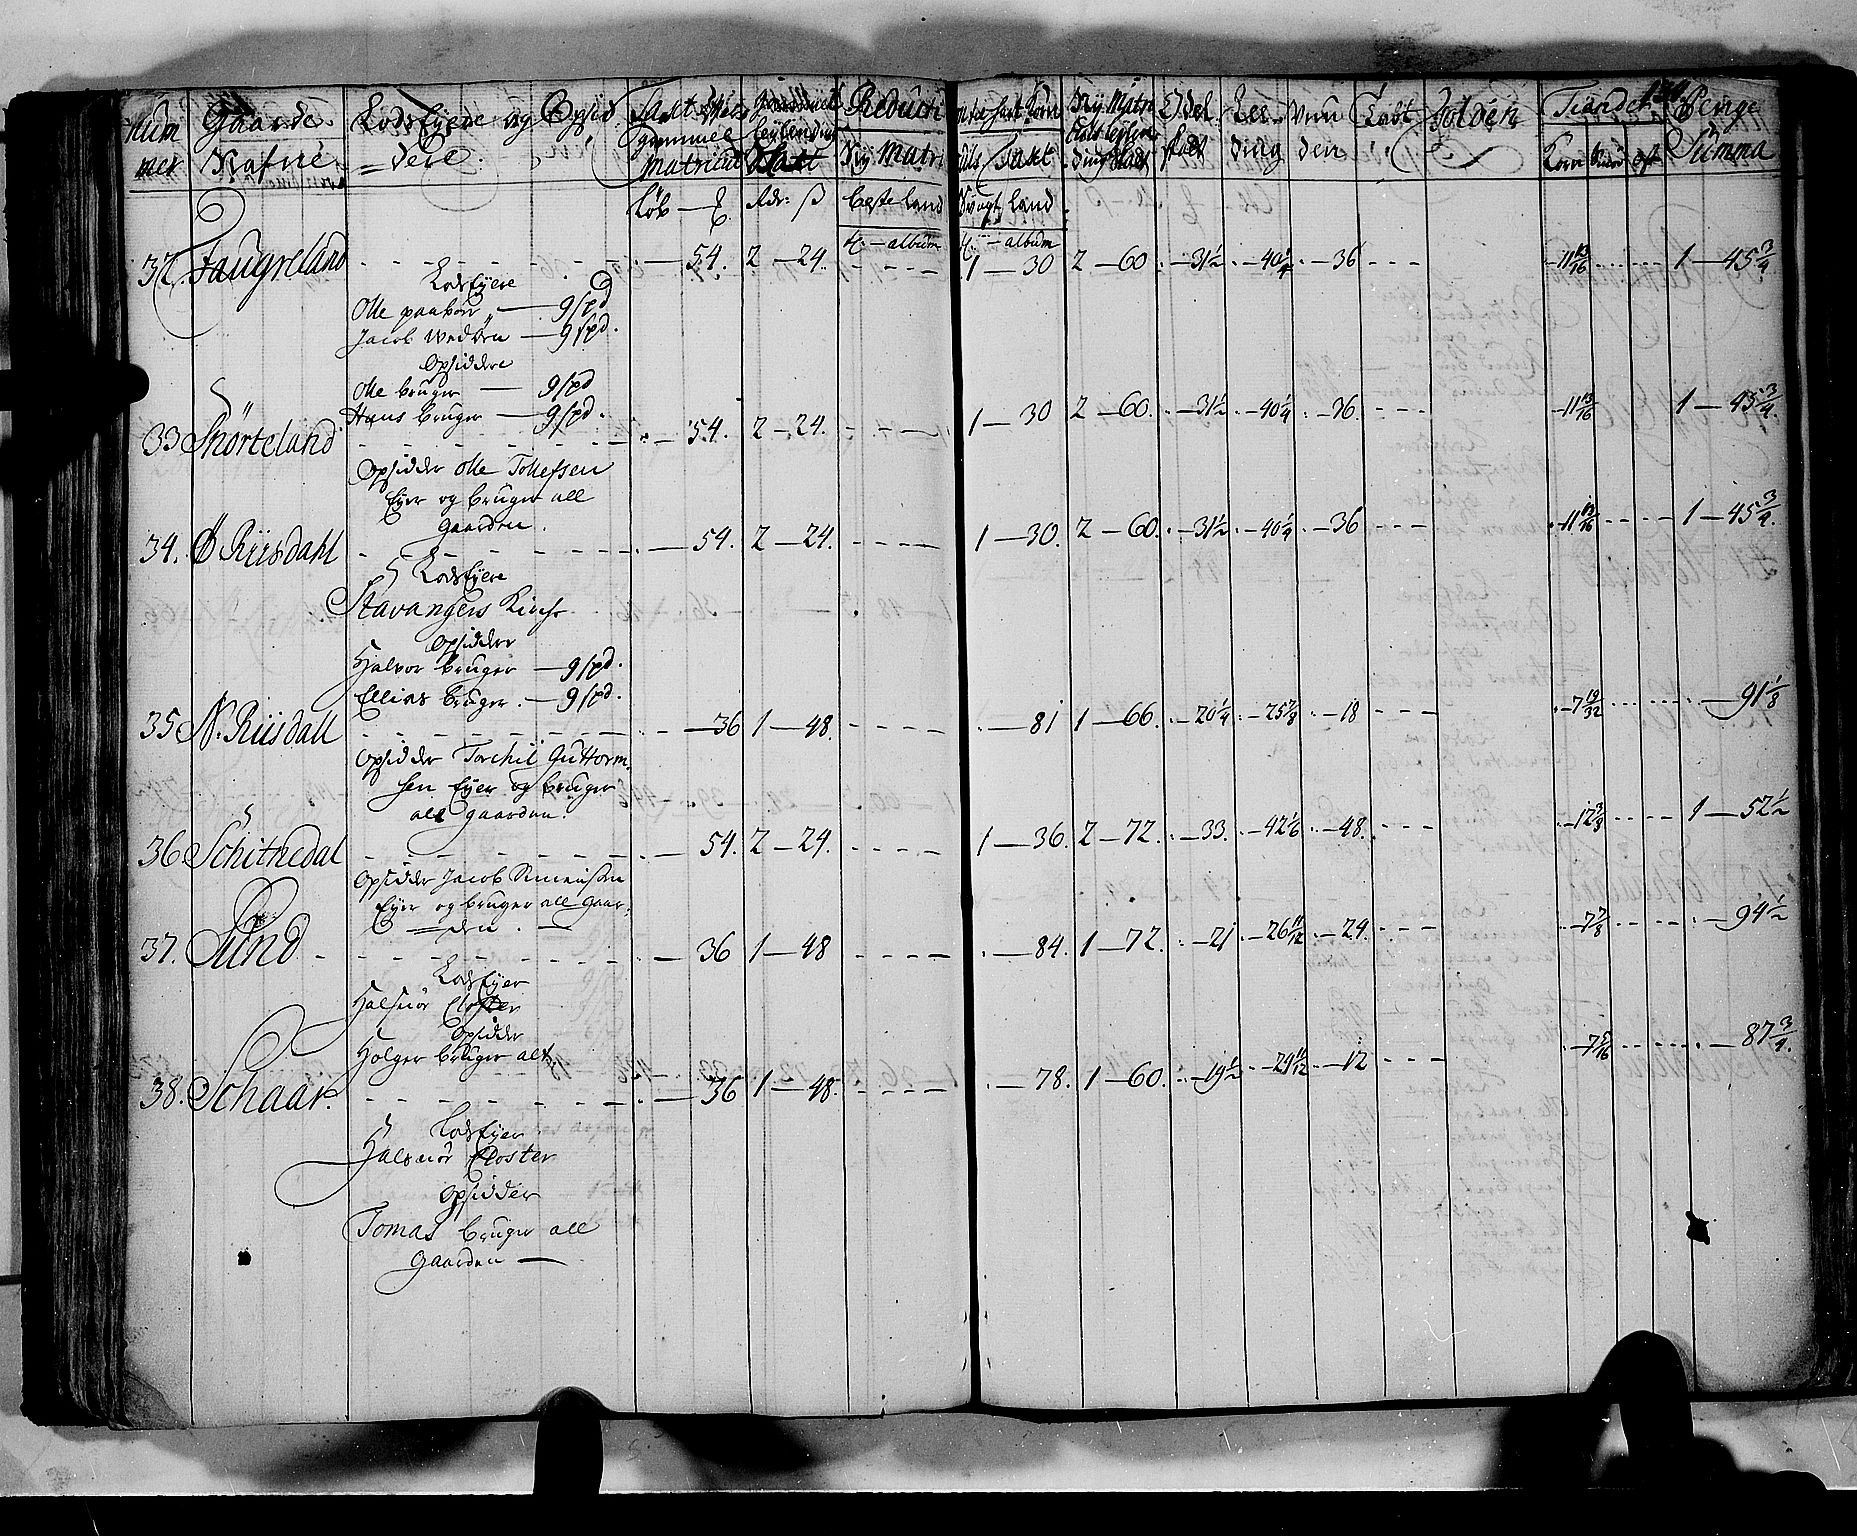 Num mer Gaarde Nafne LodsEyere og Opsid dere Taxt Effter gammel Matricul gammel leylending Skatt Reducti Ny Matri culs Taxt Ny Matriculs leylendings skatt Odel skatt Lee ding Vnu den Tiender Korn Penge Summa
Løb Rdr: β beste land Svagt land
album album
32. Haugreland 54. 2 - 24. 1 - 30 2 - 60 - 31½ - 40¼ - 36 - 11 13/16 1 - 45¾
LodsEyere
Olle paaboer - 9 spd
Jacob - 9 spd.
Opsiddere
Olle bruger - 9 spd
Hans bruger - 9 spd.
33 Snörteland 54. 2 - 24. 1 - 30 2 - 60. - 31½ - 40¼ - 36. - 11 13/16 1 - 45¾.
Opsidder Olle Tollefsen
Eyer og bruger all
gaarden.
34. Ö Riisdahl 54. 2 - 24. 1 - 30. 2 - 60. - 31½ - 40¼ - 36 - 11 13/16 1 - 45¾.
LodsEyere
Stavangers Kirche
Opsiddere
Halvor bruger - 9 spd.
Ellias bruger. - 9 spd.
35 N. Riisdall - 36 1 - 48. - 81 1 - 66. - 20¼ - 25⅞ - 18 - 7 19/32 - 91⅛
Opsidder Torchil Guttorm
sen Eyer og bruger
all gaarden.
36 Schithedal 54. 2 - 24. 1 - 36. 2 - 72. - 33. - 42⅙ - 48. - 12⅜ 1 - 52½
Opsidder Jacob Simensen
Eyer og bruger all gaar
den.
37. Sünd 36 1 - 48 - 84. 1 - 72. - 21 - 26 11/12 - 24. - 7⅞ - 94½
LodsEyer
Halsnör Closter
Opsidder
Holger bruger alt
38. Schaar. 36 1 - 48. - 78. 1 - 60. - 19½ - 24 11/12 - 12 - 7 5/16 - 87¾.
LodsEyer
Halsnör Closter
Opsidder
Tomas bruger all
gaarden